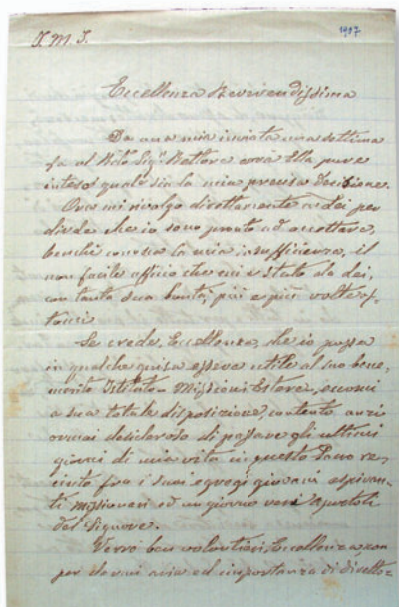 J. M. J.
1907
Eccellenza Reverendissima
Da una mia inviata una settima
fa al Rdo. Sigr. Rettore avrà Ella pure
inteso qual sia la mia precisa decisione.
Ora mi rivolgo direttamente a Lei per
dirle che io sono pronto ad accettare,
benchè conosca la mia insufficienza, il
non facile ufficio che mi è stato da Lei,
con tanta sua bontà, più e più volte
Se crede, Eccellenza, che io possa
in qualche guisa essere utile al suo bene
merito Istituto Missioni Estere, eccomi
a sua totale disposizione, contento anzi
ormai desideroso di passare gli ultimi
giorni di mia vita in questo sacro re
cinto fra i suoi egregi giovani aspiran
ti missionari ed un giorno veri Apostoli
del Signore.
Verrò ben volontieri, Eccellenza, non
per darmi aria ed importanza di diretto-